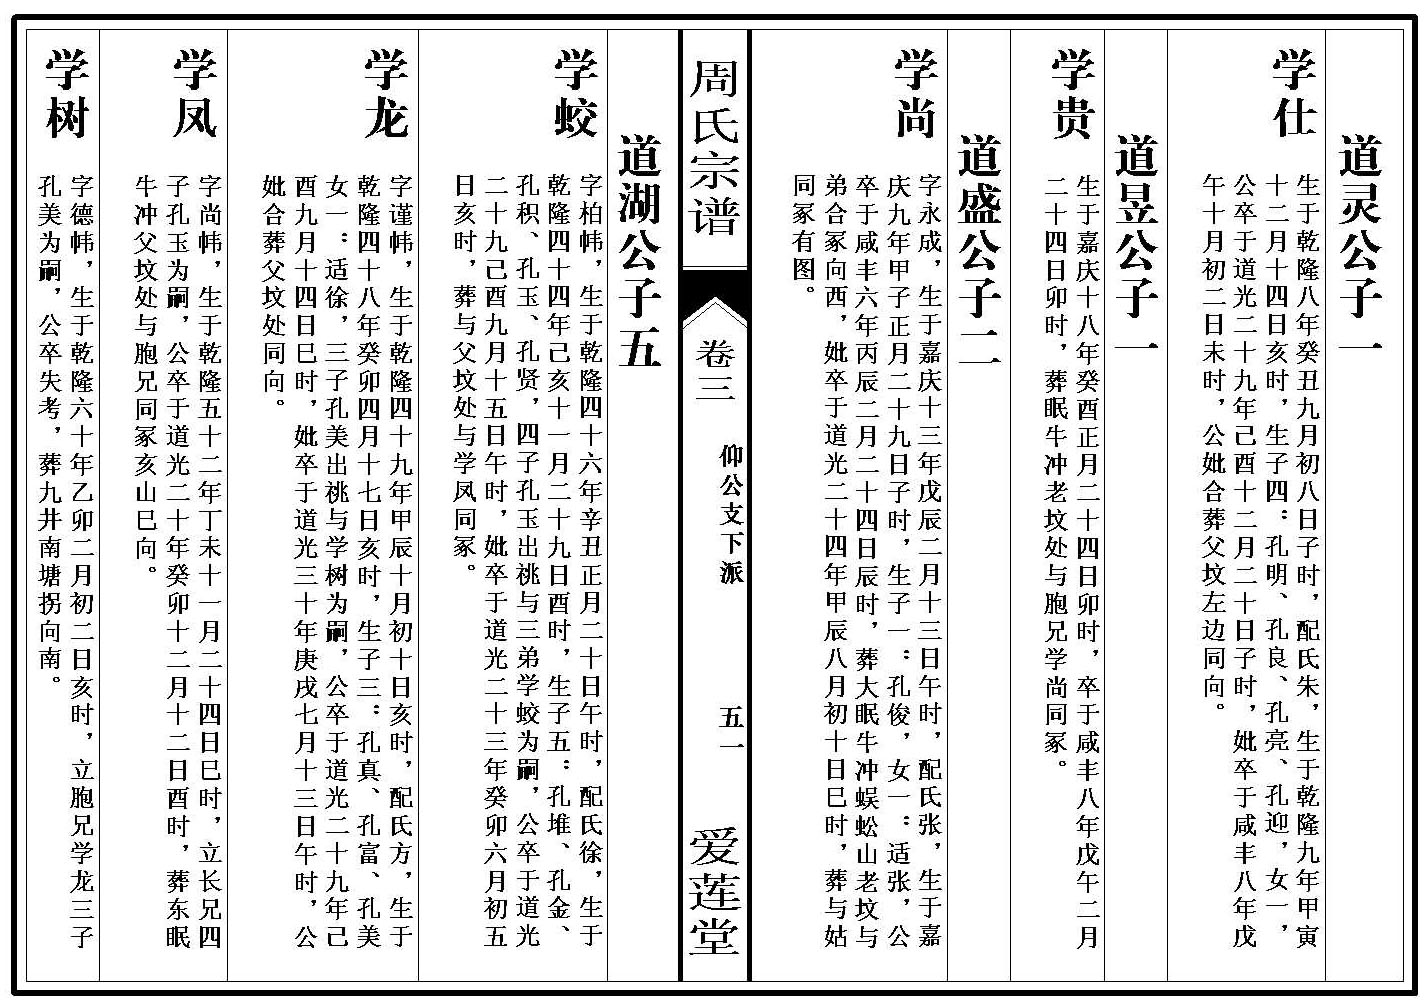 道灵公子一
学仕
生于乾隆八年癸丑九月初八日子时，配氏朱，生于乾隆九年甲寅
十二月十四日亥时，生子四：孔明、孔良、孔亮、孔迎，女一，
公卒于道光二十九年己酉十二月二十日子时，妣卒于咸丰八年戊
午十月初二日未时，公妣合葬父坟左边同向。
道昱公子一
学贵
生于嘉庆十八年癸酉正月二十四日卯时，卒于咸丰八年戊午二月
二十四日卯时，葬眠牛冲老坟处与胞兄学尚同冢。
道盛公子二
学尚
字永成，生于嘉庆十三年戊辰二月十三日午时，配氏张，生于嘉
庆九年甲子正月二十九日子时，生子一：孔俊，女一：适张，公
卒于咸丰六年丙辰二月二十四日辰时，葬大眠牛冲蜈蚣山老坟与
弟合冢向西，妣卒于道光二十四年甲辰八月初十日巳时，葬与姑
同冢有图。
周氏宗谱
卷三
仰公支下派
五一
爱莲堂
道湖公子五
学蛟
字柏帏，生于乾隆四十六年辛丑正月二十日午时，配氏徐，生于
乾隆四十四年己亥十一月二十九日酉时，生子五：孔堆、孔金、
孔积、孔玉、孔贤，四子孔玉出祧与三弟学蛟为嗣，公卒于道光
二十九己酉九月十五日午时，妣卒于道光二十三年癸卯六月初五
日亥时，葬与父坟处与学凤同冢。
学龙
字谨帏，生于乾隆四十九年甲辰十月初十日亥时，配氏方，生于
乾隆四十八年癸卯四月十七日亥时，生子三：孔真、孔富、孔美
女一：适徐，三子孔美出祧与学树为嗣，公卒于道光二十九年己
酉九月十四日巳时，妣卒于道光三十年庚戌七月十三日午时，公
妣合葬父坟处同向。
学凤
字尚帏，生于乾隆五十二年丁未十一月二十四日巳时，立长兄四
子孔玉为嗣，公卒于道光二十年癸卯十二月十二日酉时，葬东眠
牛冲父坟处与胞兄同冢亥山巳向。
学树
字德帏，生于乾隆六十年乙卯二月初二日亥时，立胞兄学龙三子
孔美为嗣，公卒失考，葬九井南塘拐向南。